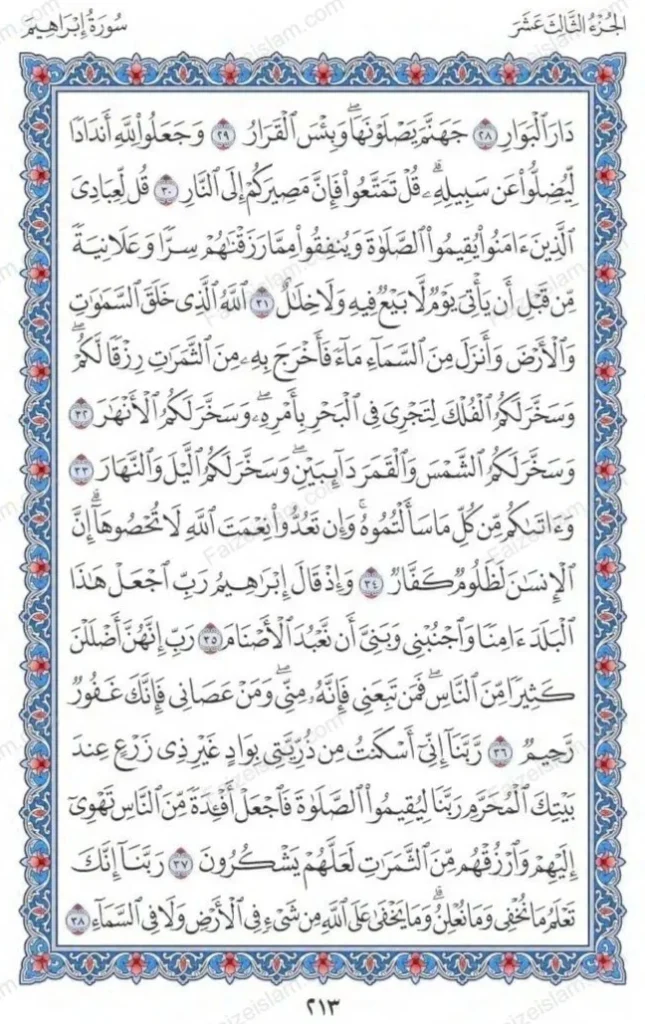 سُورَةُ إِبْرَاهِيمَ الجُزْءُ الثَّالِثَ عَشَرَ
دَارَ ٱلْبَوَارِ ٢٨ جَهَنَّمَ يَصْلَوْنَهَاۖ وَبِئْسَ ٱلْقَرَارُ ٢٩ وَجَعَلُوا۟ لِلَّهِ أَندَادًا
لِّيُضِلُّوا۟ عَن سَبِيلِهِۦۗ قُلْ تَمَتَّعُوا۟ فَإِنَّ مَصِيرَكُمْ إِلَى ٱلنَّارِ ٣٠ قُل لِّعِبَادِىَ
ٱلَّذِينَ ءَامَنُوا۟ يُقِيمُوا۟ ٱلصَّلَوٰةَ وَيُنفِقُوا۟ مِمَّا رَزَقْنَٰهُمْ سِرًّا وَعَلَانِيَةً
مِّن قَبْلِ أَن يَأْتِىَ يَوْمٌ لَّا بَيْعٌ فِيهِ وَلَا خِلَٰلٌ ٣١ ٱللَّهُ ٱلَّذِى خَلَقَ ٱلسَّمَٰوَٰتِ
وَٱلْأَرْضَ وَأَنزَلَ مِنَ ٱلسَّمَآءِ مَآءً فَأَخْرَجَ بِهِۦ مِنَ ٱلثَّمَرَٰتِ رِزْقًا لَّكُمْۖ
وَسَخَّرَ لَكُمُ ٱلْفُلْكَ لِتَجْرِىَ فِى ٱلْبَحْرِ بِأَمْرِهِۦۖ وَسَخَّرَ لَكُمُ ٱلْأَنْهَٰرَ ٣٢
وَسَخَّرَ لَكُمُ ٱلشَّمْسَ وَٱلْقَمَرَ دَآئِبَيْنِۖ وَسَخَّرَ لَكُمُ ٱلَّيْلَ وَٱلنَّهَارَ ٣٣
وَءَاتَىٰكُم مِّن كُلِّ مَا سَأَلْتُمُوهُۚ وَإِن تَعُدُّوا۟ نِعْمَتَ ٱللَّهِ لَا تُحْصُوهَآۗ إِنَّ
ٱلْإِنسَٰنَ لَظَلُومٌ كَفَّارٌ ٣٤ وَإِذْ قَالَ إِبْرَٰهِيمُ رَبِّ ٱجْعَلْ هَٰذَا
ٱلْبَلَدَ ءَامِنًا وَٱجْنُبْنِى وَبَنِىَّ أَن نَّعْبُدَ ٱلْأَصْنَامَ ٣٥ رَبِّ إِنَّهُنَّ أَضْلَلْنَ
كَثِيرًا مِّنَ ٱلنَّاسِۖ فَمَن تَبِعَنِى فَإِنَّهُۥ مِنِّىۖ وَمَنْ عَصَانِى فَإِنَّكَ غَفُورٌ
رَّحِيمٌ ٣٦ رَّبَّنَآ إِنِّىٓ أَسْكَنتُ مِن ذُرِّيَّتِى بِوَادٍ غَيْرِ ذِى زَرْعٍ عِندَ
بَيْتِكَ ٱلْمُحَرَّمِ رَبَّنَا لِيُقِيمُوا۟ ٱلصَّلَوٰةَ فَٱجْعَلْ أَفْـِٔدَةً مِّنَ ٱلنَّاسِ تَهْوِىٓ
إِلَيْهِمْ وَٱرْزُقْهُم مِّنَ ٱلثَّمَرَٰتِ لَعَلَّهُمْ يَشْكُرُونَ ٣٧ رَبَّنَآ إِنَّكَ
تَعْلَمُ مَا نُخْفِى وَمَا نُعْلِنُۗ وَمَا يَخْفَىٰ عَلَى ٱللَّهِ مِن شَىْءٍ فِى ٱلْأَرْضِ وَلَا فِى ٱلسَّمَآءِ ٣٨
٢١٣
Faizeislam.com